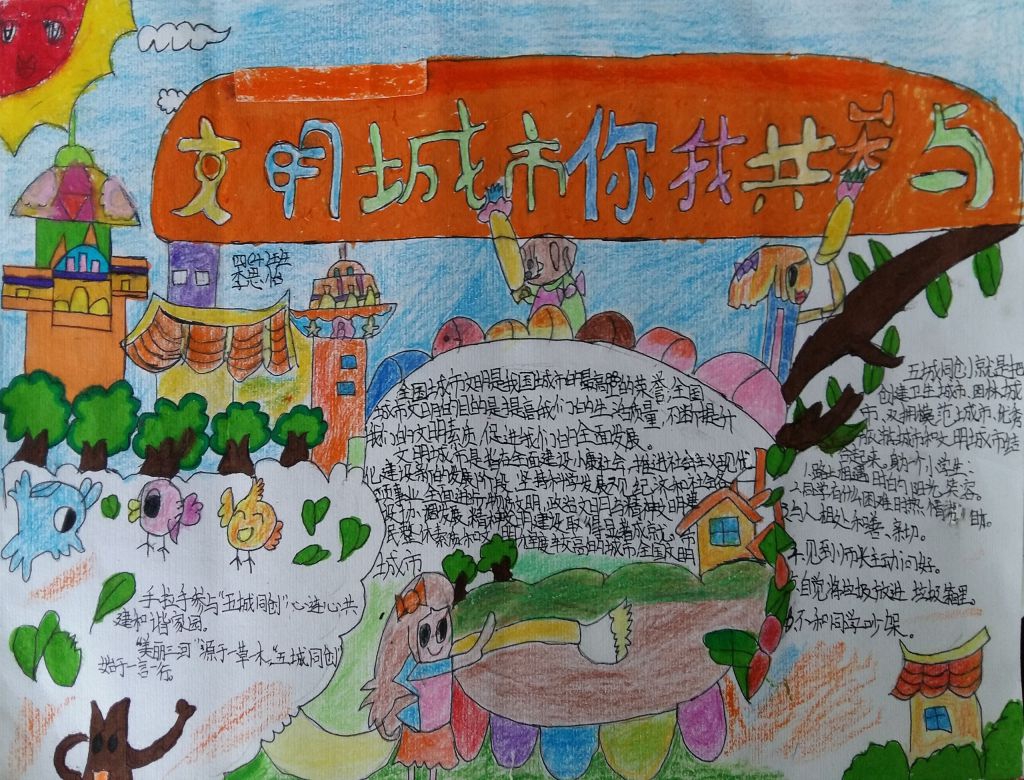 文明城市你我共参与
四(十)班
李思怡
全国城市文明是我国城市中最高的荣誉,全国
城市文明的目的是提高我们的生活质量,不断提升
我们的文明素质,促进我们的全面发展。
文明城市是指在全面建设小康社会,推进社会主义现代
化建设新的发展阶段,坚持科学发展观,经济和社会各
项事业全面进行,物质文明,政治文明与精神文明建
设协调发展,精神文明建设取得显著成就,市
民整体素质和文明程度较高的城市全国文明
城市
五城同创就是把
创建卫生城市、园林城
市、双拥模范城市、优秀
旅游城市和文明城市结
合起来。身为一个小学生:
1.路上相遇
2.同学有什么困难
3.与人相处和善、亲切。
4.见到小师长主动问好。
5.自觉将垃圾放进垃圾箱里。
6.不和同学吵架。
手拉手参与“五城同创”心连心共
建和谐家园。
美丽三河“源于一草一木,“五城同创”
始于一言一行。